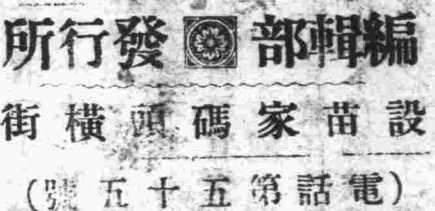 編輯部 發行所
設苗家碼頭橫街
(電話第五十五號)